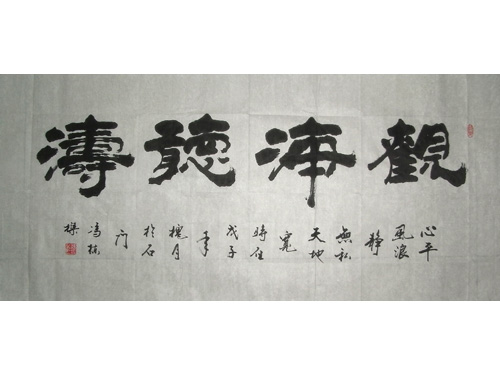 觀海聽濤
心平
風浪
靜
無私
天地
寬
時在
戊子
年
槐月
於石
門
馮